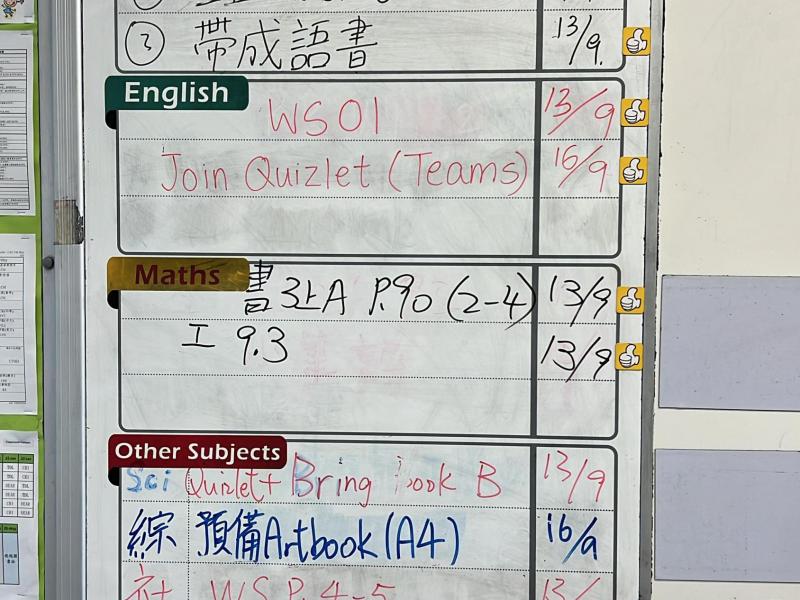 ③ 帶成語書 13/9.
English
WS01 13/9
Join Quizlet (Teams) 16/9
Maths
書3上A P.90 (2-4) 13/9
工 9.3 13/9
Other Subjects
Sci Quizlet + Bring book B 13/9
綜 預備Artbook (A4) 16/9
社 WS P.4-5 13/